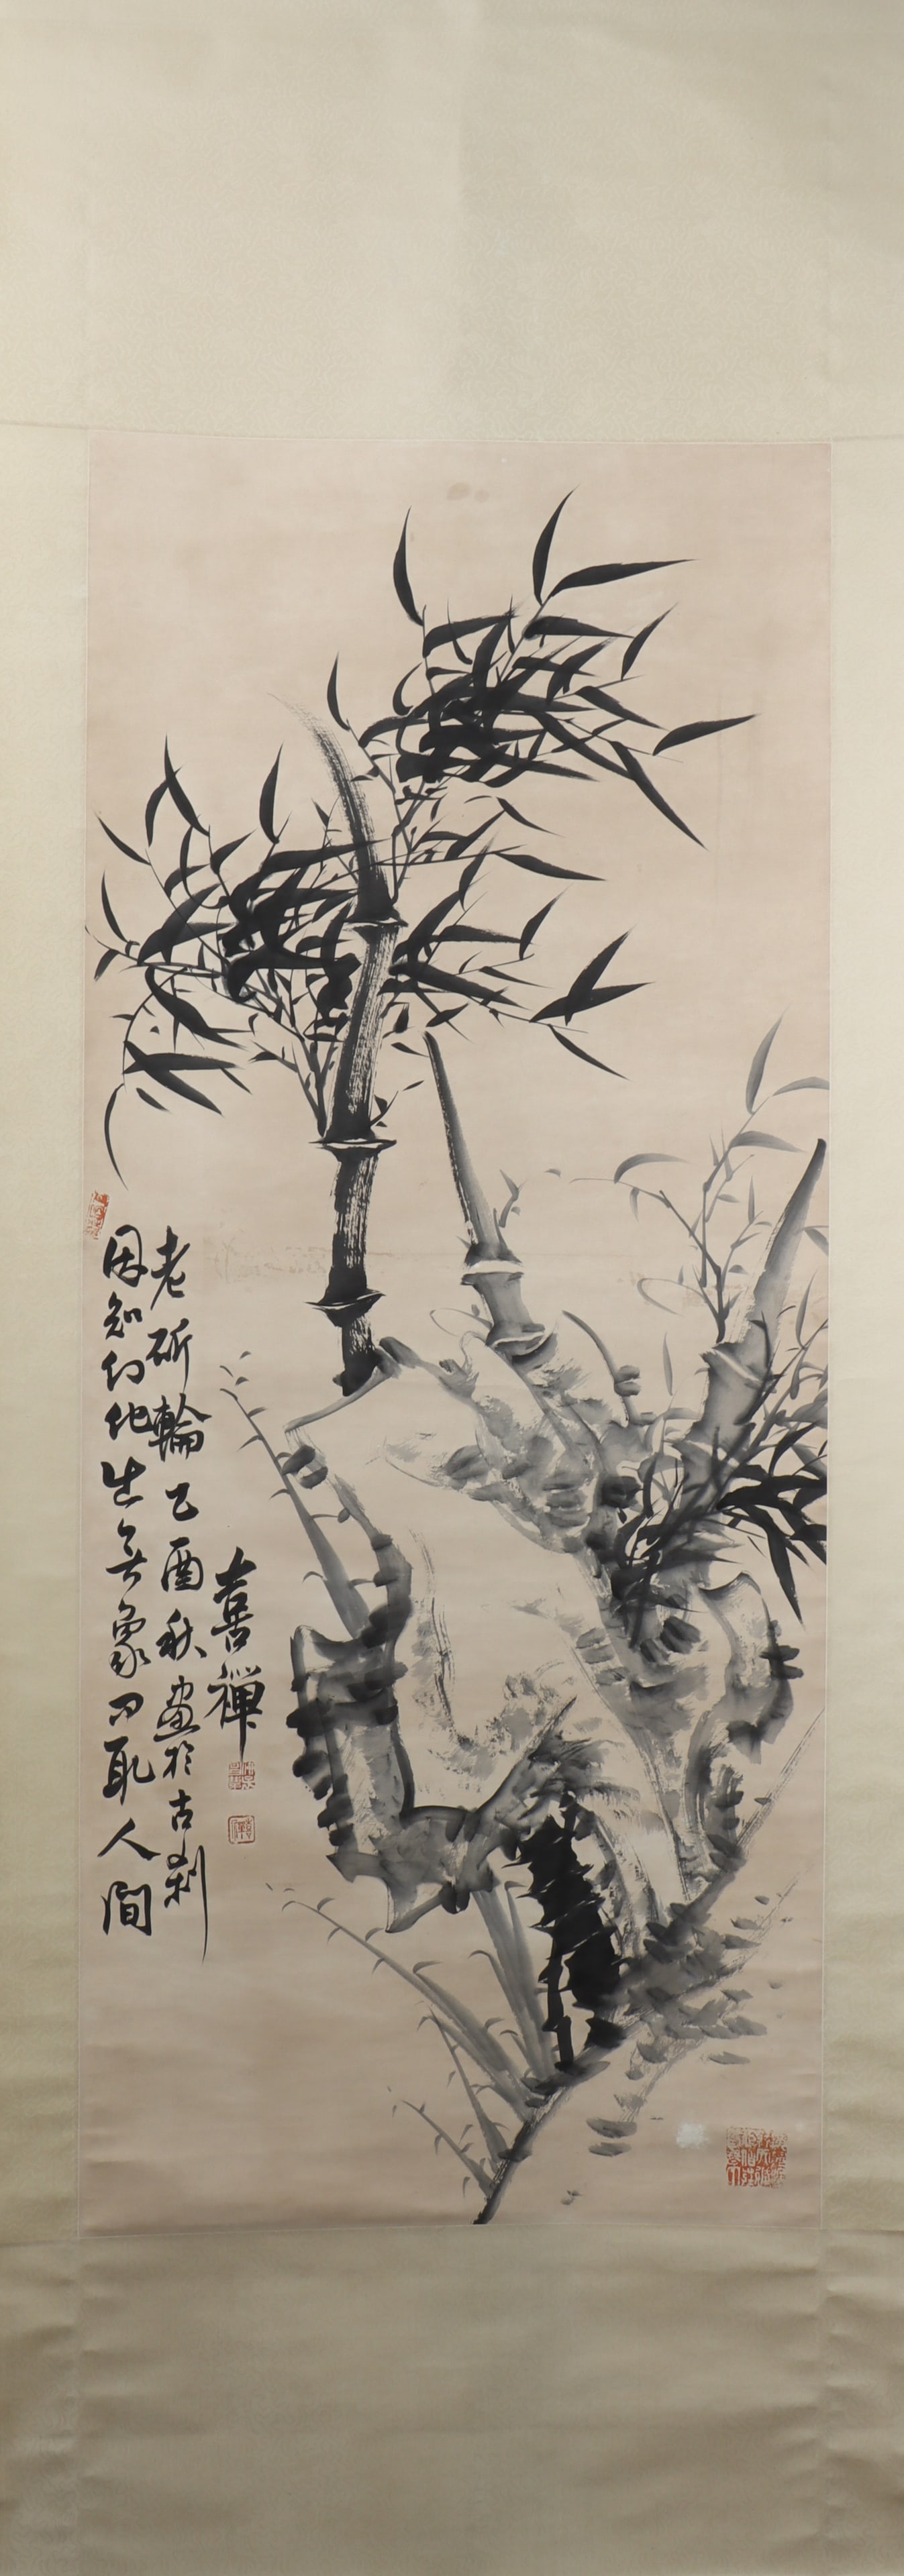 因知幻化出無象問取人間
老斫輪 乙酉秋畫於古刹
喜禪